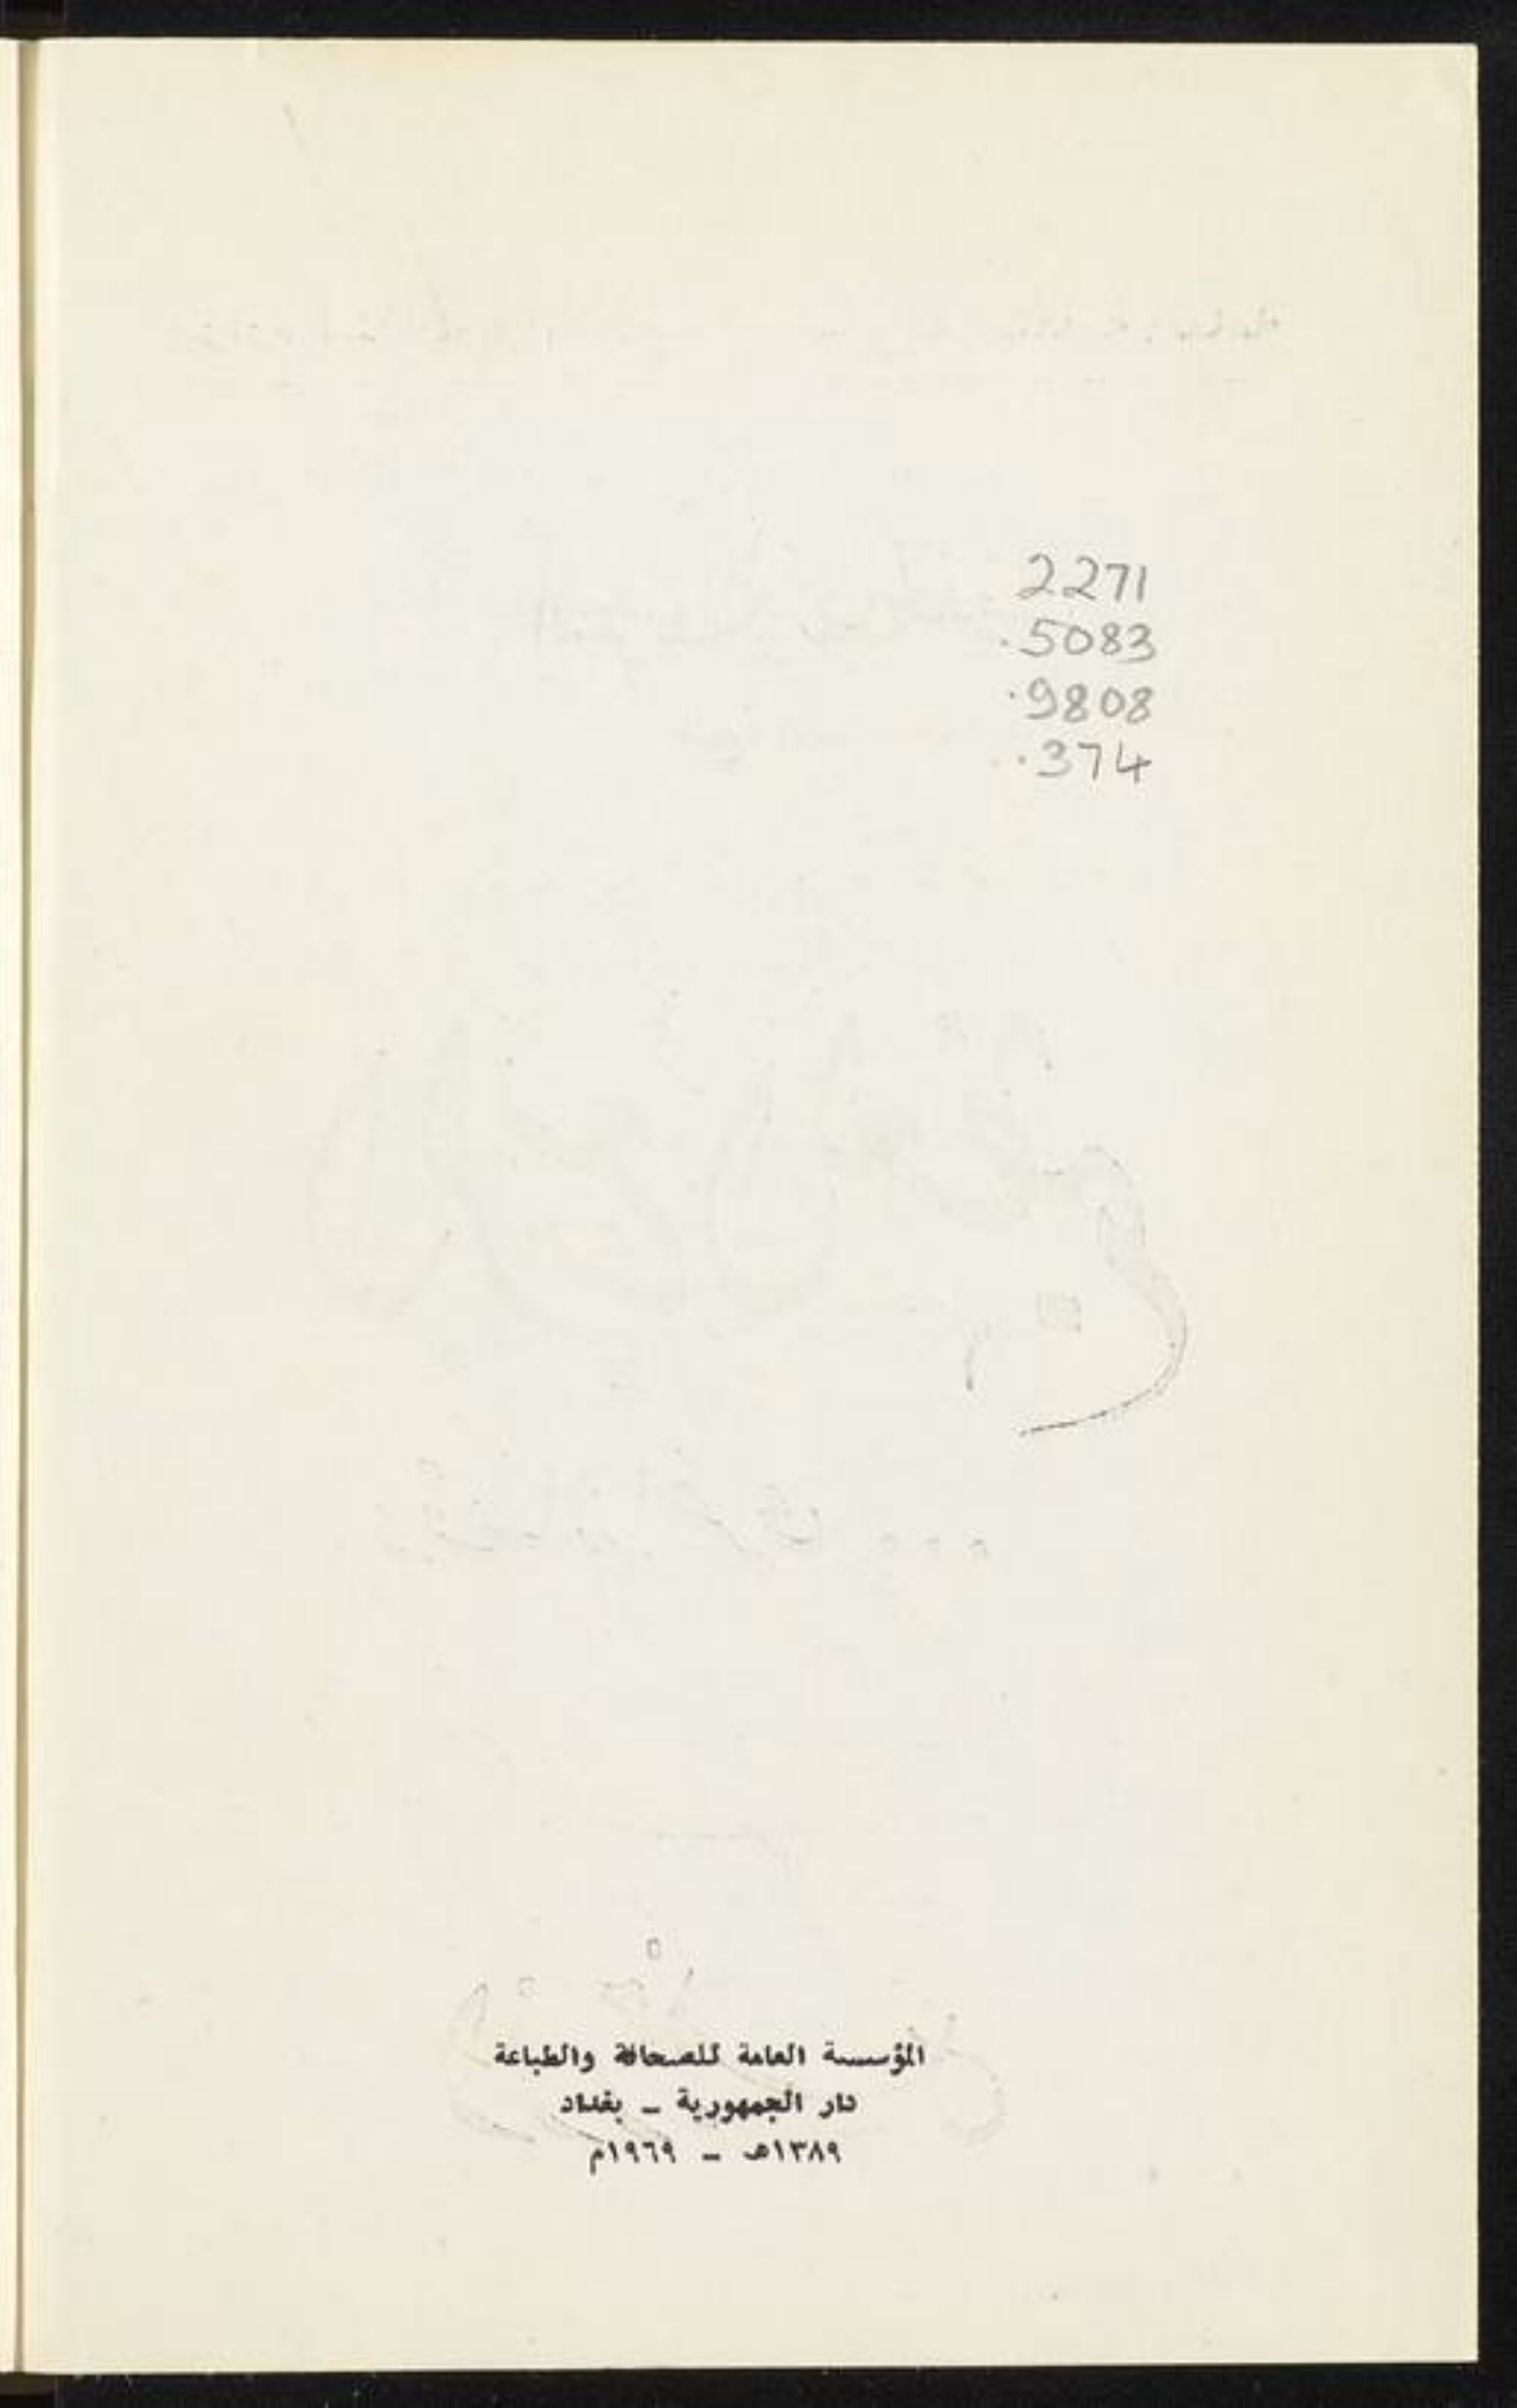 2271
.5083
.9808
.374
المؤسسة العامة للصحافة والطباعة
دار الجمهورية ــ بغداد
١٣٨٩هـ ــ ١٩٦٩م